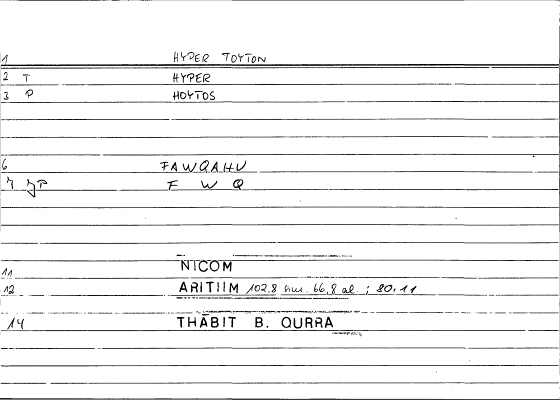 1 HYPER TOYTON
2 T HYPER
3 P HOYTOS
6 FAWQAHU
7 F W Q
11 NICOM
12 ARITIIM 102,8 66,8 al. ; 80,11
14 THĀBIT B. QURRA